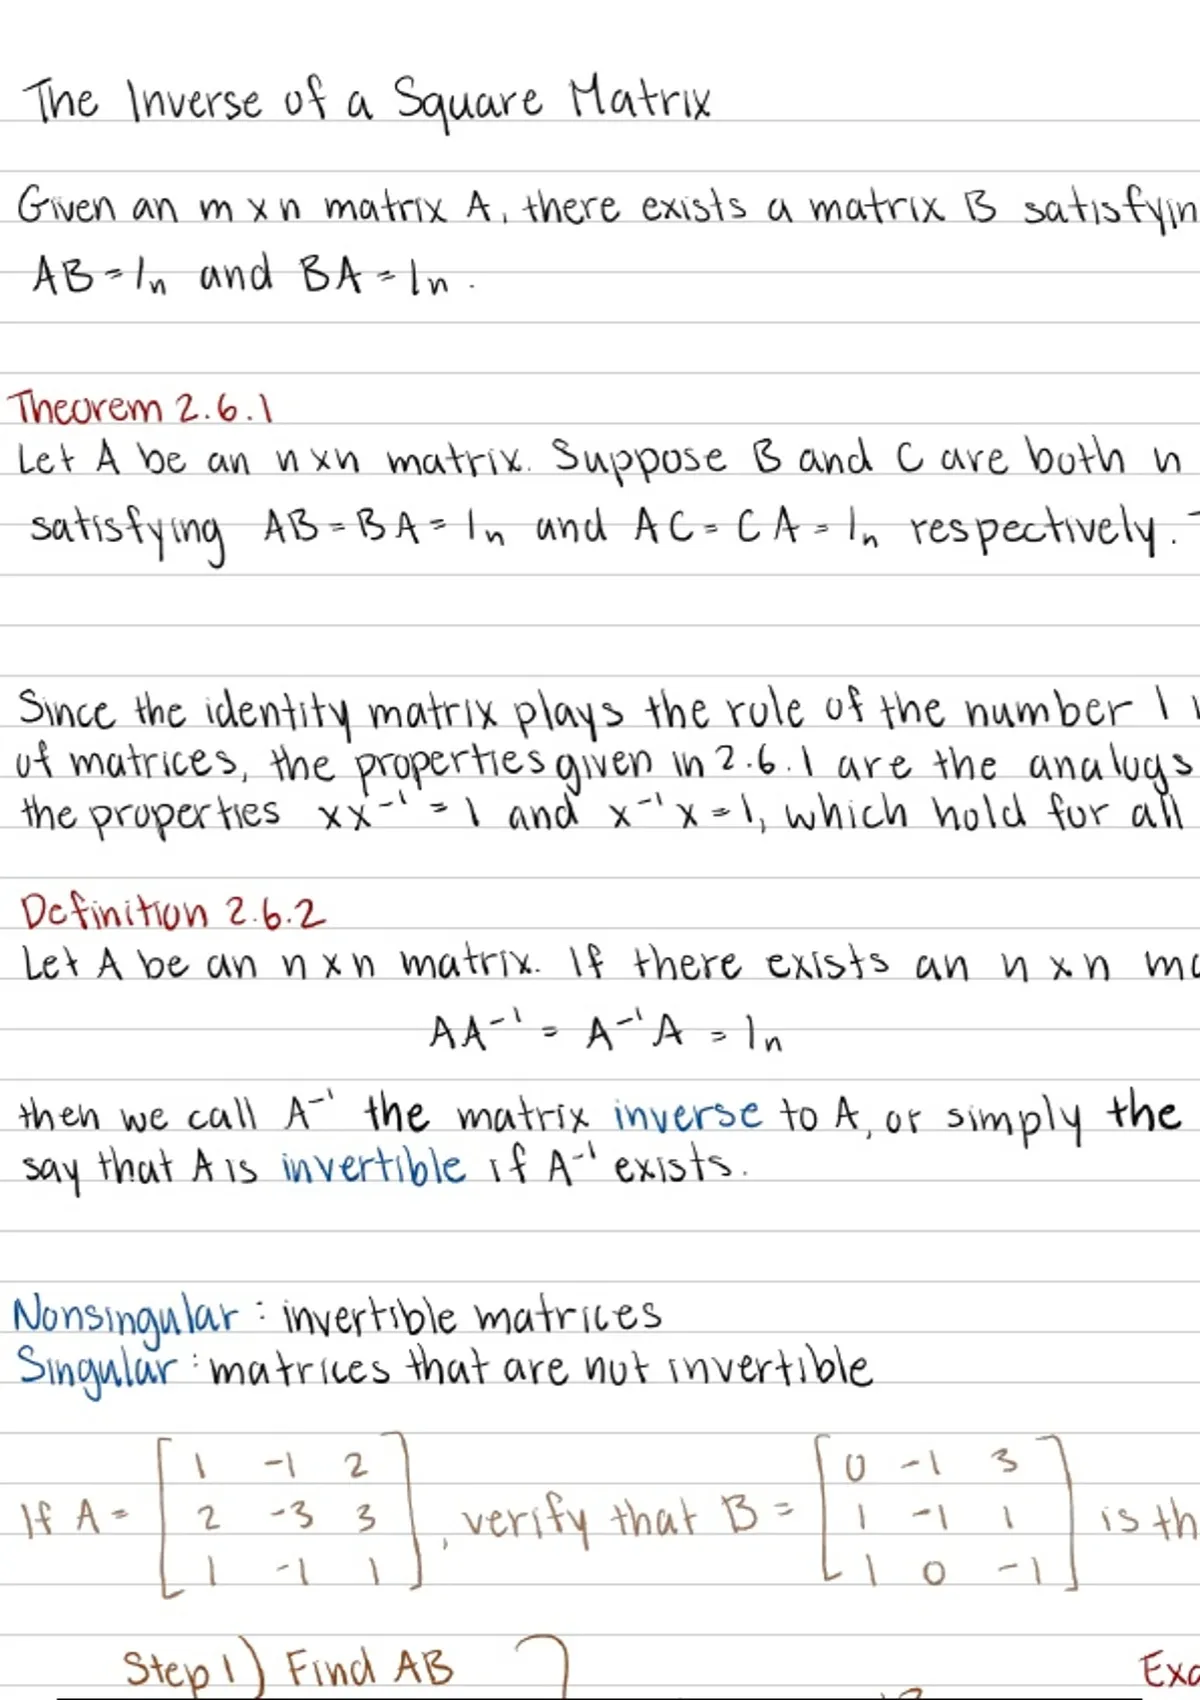 The Inverse of a Square Matrix
Given an m x n matrix A, there exists a matrix B satisfyin
AB = In and BA = In.
Theorem 2.6.1
Let A be an n x n matrix. Suppose B and C are both n
satisfying AB = BA = In and AC = CA = In respectively.
Since the identity matrix plays the role of the number 1 i
of matrices, the properties given in 2.6.1 are the analogs
the properties xx⁻¹ = 1 and x⁻¹x = 1, which hold for all
Definition 2.6.2
Let A be an n x n matrix. If there exists an n x n ma
AA⁻¹ = A⁻¹A = In
then we call A⁻¹ the matrix inverse to A, or simply the
say that A is invertible if A⁻¹ exists.
Nonsingular : invertible matrices
Singular : matrices that are not invertible
1 -1 2 0 -1 3
If A = 2 -3 3 , verify that B = 1 -1 1 is th
1 -1 1 1 0 -1
Step 1) Find AB
Exa